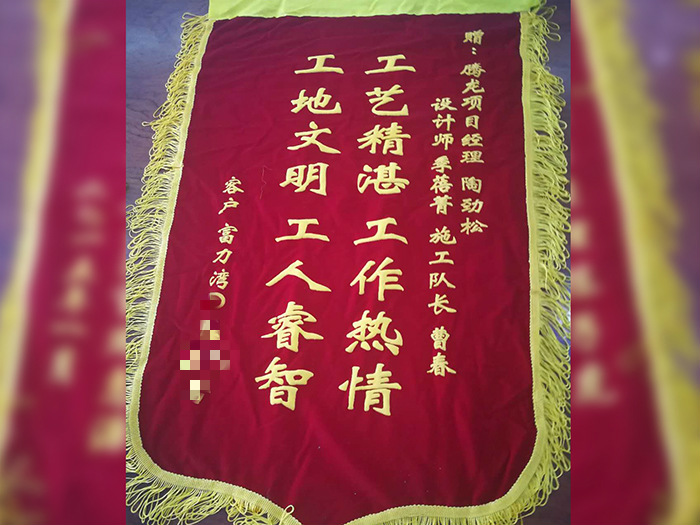 赠：腾龙项目经理 陶劲松
设计师 季蓓菁 施工队长 曹春
工艺精湛 工作热情
工地文明 工人睿智
客户 富力湾D